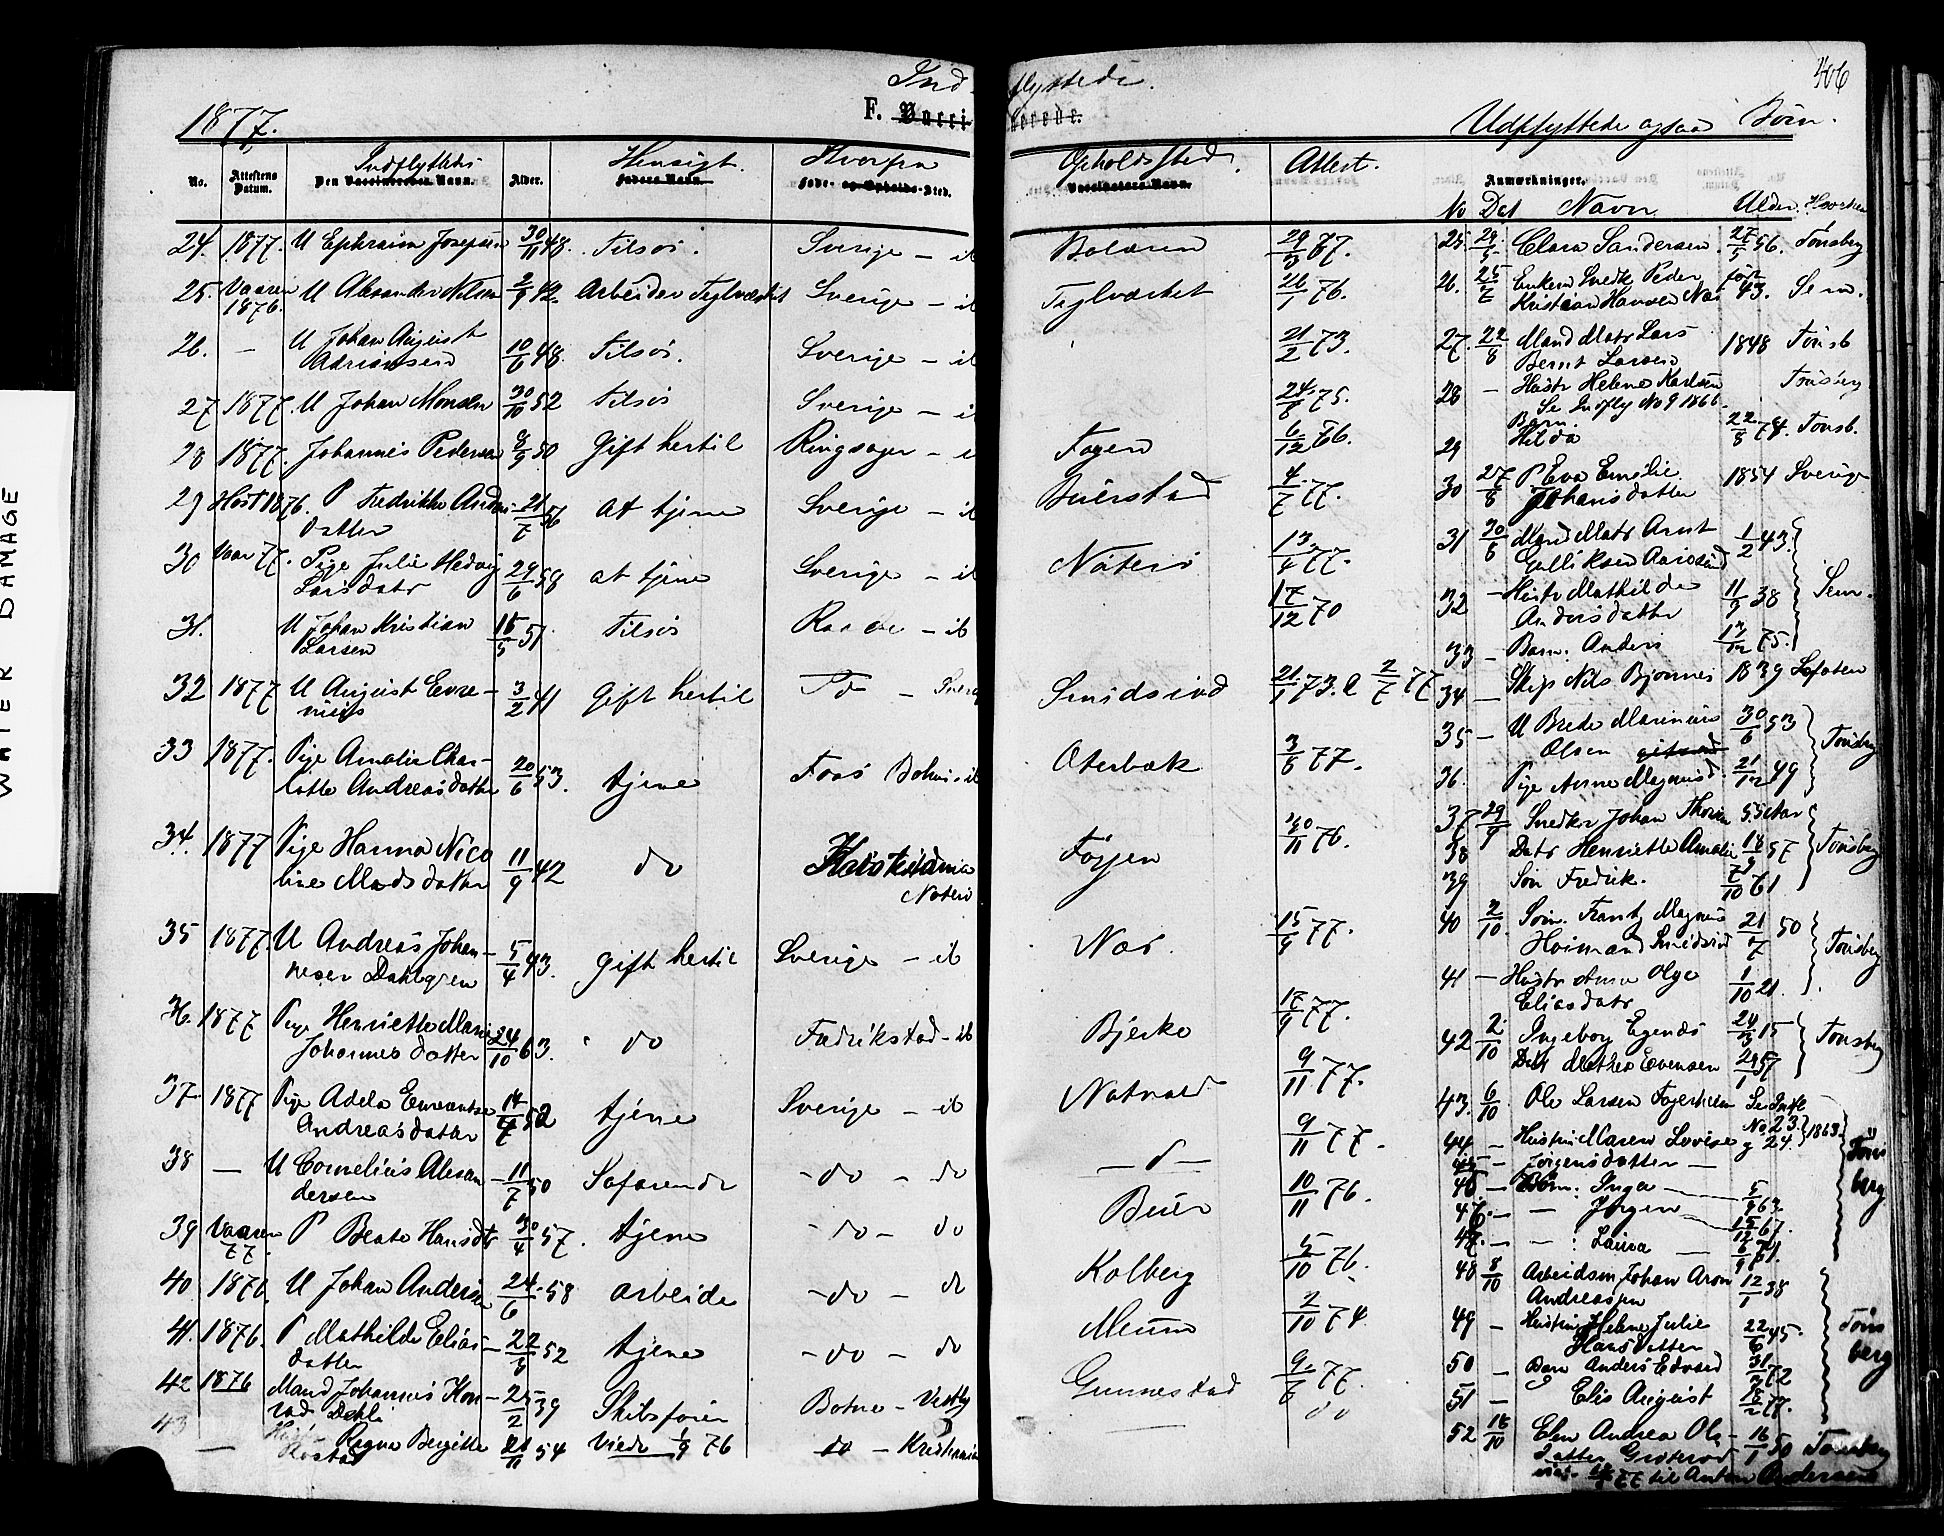 406
Ind flyttede.
1877.
F. Vacci nerede.
Udflyttede ogsaa Børn.
No. Attestens Datum. Indflyttets Den Vaccineredes Navn. Alder. Hensigt. Faders Navn. Hvorfra Føde- og Opholds-Sted.
24. 1877. U Ephraim Josepsen 30/11 48. Tilsøs. Sverige - ib
25. Vaaren 1876. U Alexander Nilsen 2/9 42. Arbeider Teglværket Sverige - ib
26. - U Johan August
Adriansen 10/6 48. Tilsøs. Sverige - ib
27 1877. U Johan Monsen 30/10 52 Tilsøs Sverige - ib
28 1877. Johannes Pedersen 8/9 50 Gift hertil Ringsager - i
29 Høst 1876. P Fredrikke Anders-
datter 21/7 56 at tjene Sverige - ib
30 Vaar 77. Pige Julie Hedvig
Larsdatr 29/6 58 at tjene Sverige - ib
31. U Johan Kristian
Larsen 15/5 51 Tilsøs Raade - ib
32 1877 U August Evre-
nius 3/2 41 Gift hertil Do - Sverg
33 1877. Pige Amalie Char-
lotte Andreasdatter 20/6 53. tjene Foss Bohus ib
34. 1877 Pige Hanna Nico
line Madsdatter 11/9 42 do Kristiania
Nøterø
35 1877. U Andreas Johan-
nesen Dahlgren 5/4 43. Gift hertil Sverige - ib
36. 1877 Pige Henriette Marie
Johannesdatter 24/10 63. do Fredrikstad - ib
37. 1877 Pige Adela Emerentse
Andreasdatter 14/7 52 tjene Sverige - ib
38 - U Cornelius Alexan-
dersen 11/7 50 Søfarende - do - do
39 Vaaren 77. P Beate Hansdtr 30/4 57. tjene - do - do
40 1876. U Johan Andersen 24/6 58 arbeide - do - do
41. 1876. P Mathilde Elias-
datter 22/8 52 tjene - do - do
42 1876 Mand Johannes Kon-
rad Dehli 25/2 39 Skibsfører Botne - Vestby
43 - Hustr Ragna Bergitte
Rostad 21/11 54 Viede 1/9 76 do - Kristiania
Opholdssted. Vaccinatørens Navn. Attest. Anmærkninger.
No Dat Navn Alder. Hvorhen
Bolæren 29/3 67.
Teglværket 26/1 76.
21/2 73.
24/8 75.
Føyen 6/12 76.
Buerstad 4/7 77.
Nøterø 13/4 77.
17/12 70
Smidsrød 21/1 73. & 2/7 77
Oterbæk 3/8 77.
Føyen 30/11 76.
Næs. 15/9 77.
Bjerke 17/9 77.
Nøtnæs 9/11 77.
- d - 9/11 77.
Buer 10/11 76.
Kolberg 5/10 76.
Meum 2/10 74
Gunnestad 9/7 77.
do
25. 29/5 Clara Sandersen 27/5 56. Tønsberg
26. 25/7 Enken Snedk Peder
Kristian Hansen Næs født 43. Sem.
27. 22/8 Mand Matr Lars
Bernt Larsen 1848 Tønsb
28 - Hustr Helene Karlsen Tønsberg
Se Indfly No 9 1866.
29 Barn.
Hilda 22/8 74. Tønsb.
30 27/8 P Eva Emelie
Johansdatter 1854 Sverige
31 30/8 Mand Matr Arnt
Gulliksen Aarøsund 1/2 43.
32 - Hustr Mathilde
Andersdatter 11/9 38 Sem.
33 - Barn: Anders 17/12 75.
34 - Skip Nils Bjønnes 1839 Lofoten
35 - U Brede Marinius
Olsen 30/6 53 Tønsberg
36. Pige Anne Magnusd 21/12 49
37 29/9 Snedker Johan Thorsen 55 Aar
38 Datr Henriette Amalie 18/9 57 Tønsberg
39 Søn Fredrik. 7/10 61
40 2/10. Søm. Frantz Magnus
Hoimand Smidsrød 21/7 50 Tønsberg
41 - Hustr Anne Olge
Eliasdatr 1/10 21.
42 2/10 Ingeborg Egends 24/3 15 Tønsberg
Datr Mathea Evensen 29/1 57
43. 6/10 Ole Larsen Fagerheim Se Indfl
No 23.
44 - Hustru Maren Lovise g 24. 1863. Tøns
45 - Jørgensdatter - berg
46 - Børn: Inga - 5/9 63.
47. - - Jørgen - 15/12 67.
47. - - : Laura - 6/9 71.
48 8/10 Arbeidsm Johan Aron 12/1 38
Andreassen
49 - Hustru Helene Julie 22/6 45. Tøns
Hansdatter berg
50 - Barn Anders Edvard 31/3 72
51 - Elis August 18/2 77.
52 18/10 Elen Andrea Ols- 16/1 50 Tønsberg
datter Grøterød
viet 77 til Anton Andersen